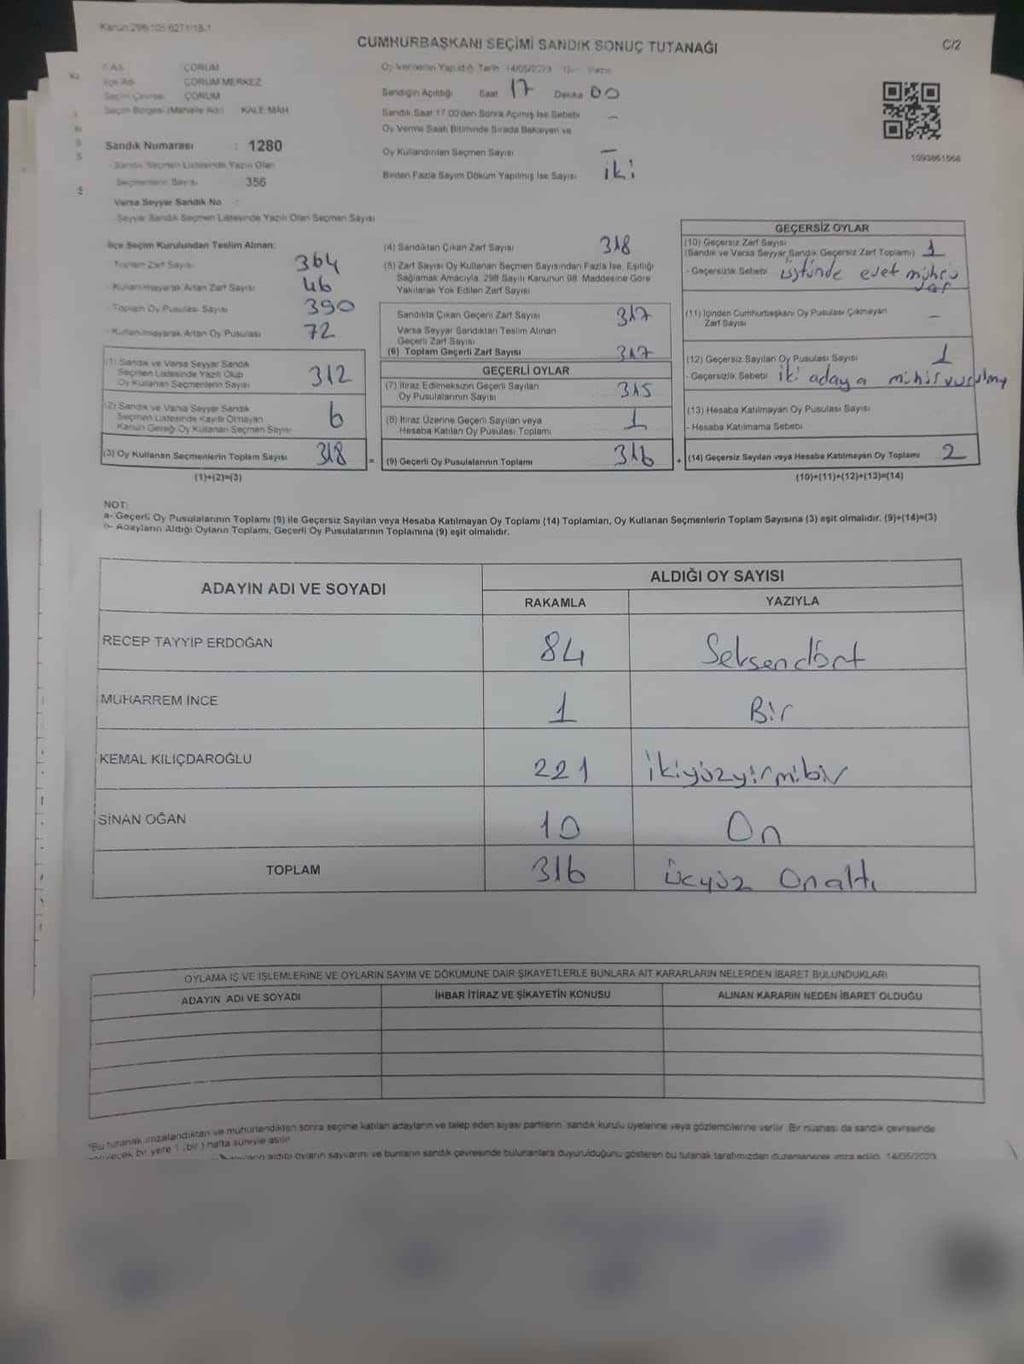 CUMHURBAŞKANI SEÇİMİ SANDIK SONUÇ TUTANAĞI
C/2
ÇORUM
ÇORUM MERKEZ
ÇORUM
KALE MAH
Sandık Numarası : 1280
Sandık Seçmen Listesinde Yazılı Olan
Seçmenlerin Sayısı 356
Varsa Seyyar Sandık No :
Seyyar Sandık Seçmen Listesinde Yazılı Olan Seçmen Sayısı
Oy Vermenin Yapıldığı Tarih 14/05/2023
Sandığın Açıldığı Saat 17 Dakika 00
Sandık Saat 17.00'den Sonra Açılmış İse Sebebi –
Oy Verme Saati Bitiminde Sırada Bekleyen ve
Oy Kullandırılan Seçmen Sayısı –
Birden Fazla Sayım Döküm Yapılmış İse Sayısı iki
1093861568
İlçe Seçim Kurulundan Teslim Alınan:
Toplam Zarf Sayısı 364
Kullanılmayarak Artan Zarf Sayısı 46
Toplam Oy Pusulası Sayısı 390
Kullanılmayarak Artan Oy Pusulası 72
(1) Sandık ve Varsa Seyyar Sandık
Seçmen Listesinde Yazılı Olup
Oy Kullanan Seçmenlerin Sayısı 312
(2) Sandık ve Varsa Seyyar Sandık
Seçmen Listesinde Kayıtlı Olmayan
Kanun Gereği Oy Kullanan Seçmen Sayısı 6
(3) Oy Kullanan Seçmenlerin Toplam Sayısı 318
(1)+(2)=(3)
(4) Sandıktan Çıkan Zarf Sayısı 318
(5) Zarf Sayısı Oy Kullanan Seçmen Sayısından Fazla İse, Eşitliği
Sağlamak Amacıyla, 298 Sayılı Kanunun 98. Maddesine Göre
Yakılarak Yok Edilen Zarf Sayısı
Sandıkta Çıkan Geçerli Zarf Sayısı 317
Varsa Seyyar Sandıktan Teslim Alınan
Geçerli Zarf Sayısı
(6) Toplam Geçerli Zarf Sayısı 317
GEÇERLİ OYLAR
(7) İtiraz Edilmeksizin Geçerli Sayılan
Oy Pusulalarının Sayısı 315
(8) İtiraz Üzerine Geçerli Sayılan veya
Hesaba Katılan Oy Pusulası Toplamı 1
= (9) Geçerli Oy Pusulalarının Toplamı 316
GEÇERSİZ OYLAR
(10) Geçersiz Zarf Sayısı
(Sandık ve Varsa Seyyar Sandık Geçersiz Zarf Toplamı) 1
- Geçersizlik Sebebi üstünde evet mührü
var
(11) İçinden Cumhurbaşkanı Oy Pusulası Çıkmayan
Zarf Sayısı –
(12) Geçersiz Sayılan Oy Pusulası Sayısı 1
- Geçersizlik Sebebi iki adaya
(13) Hesaba Katılmayan Oy Pusulası Sayısı
- Hesaba Katılmama Sebebi
+ (14) Geçersiz Sayılan veya Hesaba Katılmayan Oy Toplamı 2
(10)+(11)+(12)+(13)=(14)
NOT:
a- Geçerli Oy Pusulalarının Toplamı (9) ile Geçersiz Sayılan veya Hesaba Katılmayan Oy Toplamı (14) Toplamları, Oy Kullanan Seçmenlerin Toplam Sayısına (3) eşit olmalıdır. (9)+(14)=(3)
b- Adayların Aldığı Oyların Toplamı, Geçerli Oy Pusulalarının Toplamına (9) eşit olmalıdır.
ADAYIN ADI VE SOYADI
ALDIĞI OY SAYISI
RAKAMLA YAZIYLA
RECEP TAYYİP ERDOĞAN 84 Seksendört
MUHARREM İNCE 1 Bir
KEMAL KILIÇDAROĞLU 221 ikiyüzyirmibir
SİNAN OĞAN 10 On
TOPLAM 316 üçyüz Onaltı
OYLAMA İŞ VE İŞLEMLERİNE VE OYLARIN SAYIM VE DÖKÜMÜNE DAİR ŞİKAYETLERLE BUNLARA AİT KARARLARIN NELERDEN İBARET BULUNDUKLARI
ADAYIN ADI VE SOYADI İHBAR İTİRAZ VE ŞİKAYETİN KONUSU ALINAN KARARIN NEDEN İBARET OLDUĞU
*Bu tutanak imzalandıktan ve mühürlendikten sonra seçime katılan adayların ve talep eden siyasi partilerin sandık kurulu üyelerine veya gözlemcilerine verilir. Bir nüshası da sandık çevresinde
bir yere 1 (bir) hafta süreyle asılır.
aldığı oyların sayılarını ve bunların sandık çevresinde bulunanlara duyurulduğunu gösteren bu tutanak tarafımızdan düzenlenerek imza edildi. 14/05/2023